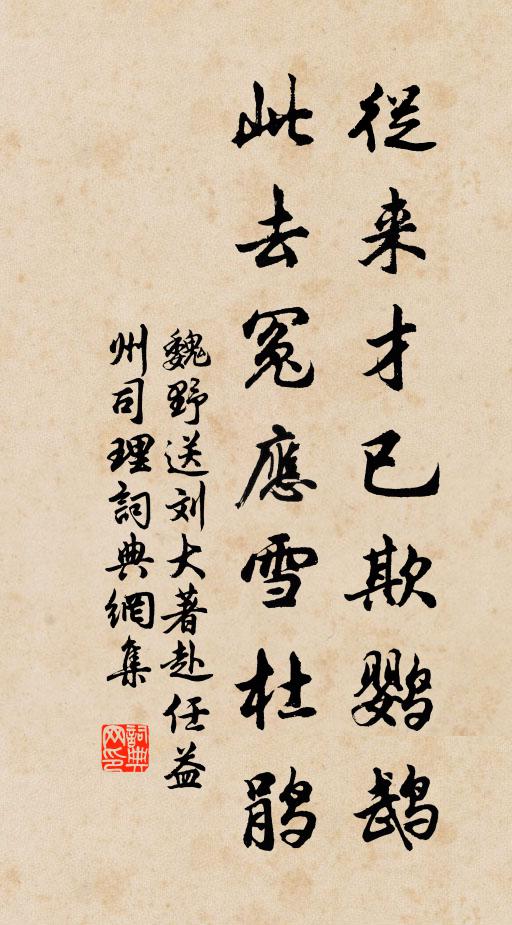 從来才已欺鹦鹉
此去冤應雪杜鹃
魏野送刘大著赴任益
州司理詞典網集
詞典网印